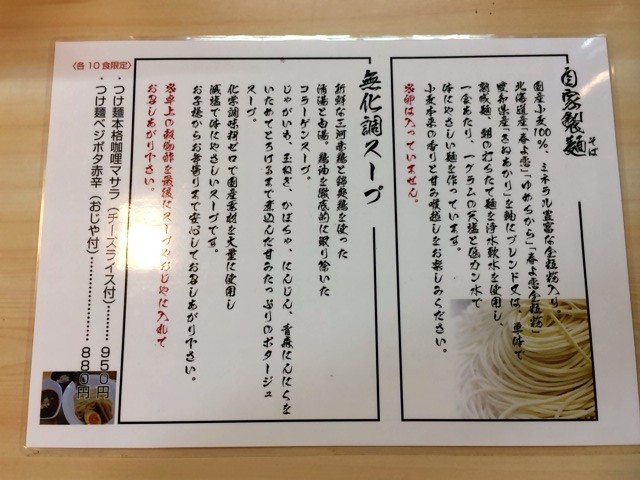 自家製麺
そば
国産小麦100%、ミネラル豊富な全粒粉入り。
北海道産「春よ恋」「ゆめちから」「春よ恋全粒粉」
愛知県産「きぬあかり」を軸にブレンド又は、単体で
熟成麺、朝の打ちたて麺を浄水軟水を使用し、
一食あたり、一グラムの天塩と低カン水で
体にやさしい麺を作っています。
小麦本来の香りと甘み喉越しをお楽しみください。
※卵は入っていません。
無化調スープ
新鮮な三河赤鶏と錦爽鶏を使った
清湯と白湯。鶏油を徹底的に取り除いた
コラーゲンスープ。
じゃがいも、玉ねぎ、かぼちゃ、にんじん、青森にんにくを
いためてとろけるまで煮込んだ甘みたっぷりのポタージュ
スープ。
化学調味料ゼロで国産素材を大量に使用し
減塩で体にやさしいスープです。
お子様からお年寄りまで安心してお召しあがり下さい。
※卓上の穀物酢を最後にスープやおじやに入れて
お召しあがり下さい。
〈各10食限定〉
・つけ麺本格咖哩マサラ(チーズライス付)………950円
・つけ麺ベジポタ赤辛(おじや付)………………880円